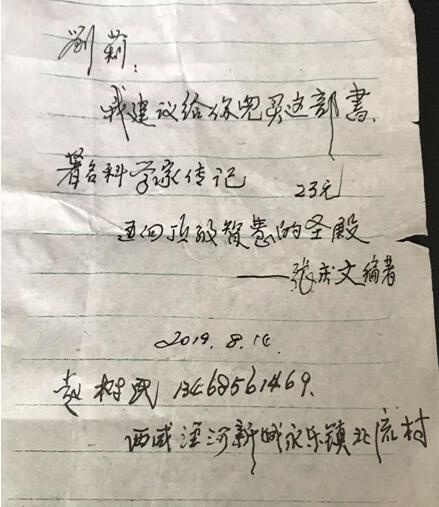 刘莉：
我建议给你儿买这部书.
著名科学家传记 23元
通向顶级智慧的圣殿
——张庆文编著
2019.8.14.
赵树民 13468561469.
西咸泾河新城永乐镇北流村